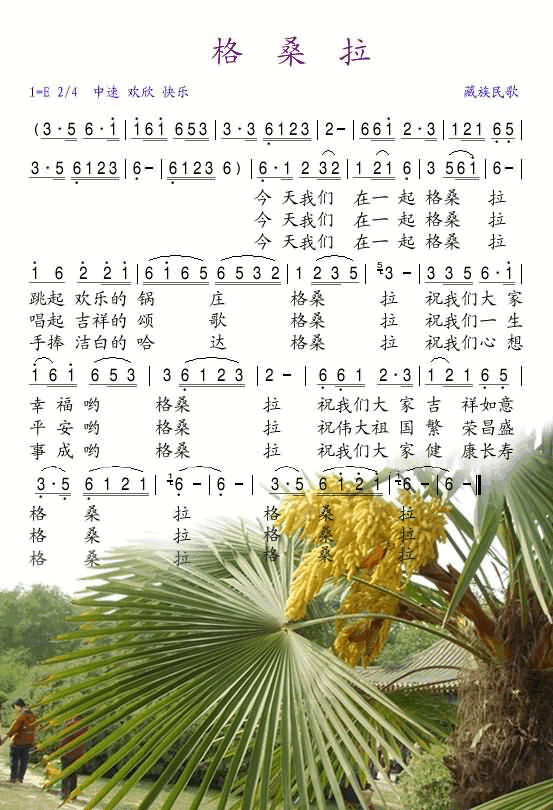 格 桑 拉
1=E 2/4 中速 欢欣 快乐 藏族民歌
(3·5 6·i | i6i 653 | 3·3 6123 | 2- | 66i 2·3 | 121 65 |
3·5 6123 | 6- | 6123 6) | 6·1 2 32 | 1 21 6 | 3 56i | 6- |
今 天我们 在一 起 格桑 拉
今 天我们 在一 起 格桑 拉
今 天我们 在一 起 格桑 拉
i 6 2 2i | 6i65 6532 | 1 235 | 5/4 3- | 335 6·i |
跳起 欢乐的 锅 庄 格桑 拉 祝我们大 家
唱起 吉祥的 颂 歌 格桑 拉 祝我们一 生
手捧 洁白的 哈 达 格桑 拉 祝我们心 想
i6i 653 | 3 6123 | 2- | 66i 2·3 | 121 65 |
幸 福 哟 格桑 拉 祝我们大 家 吉 祥如意
平 安 哟 格桑 拉 祝伟大祖 国 繁 荣昌盛
事 成 哟 格桑 拉 祝我们大 家 健 康长寿
3·5 6121 | 6- | 6- | 3·5 6i2i | 6- | 6- ‖
格 桑 拉 格 桑 拉
格 桑 拉 格 桑 拉
格 桑 拉 格 桑 拉